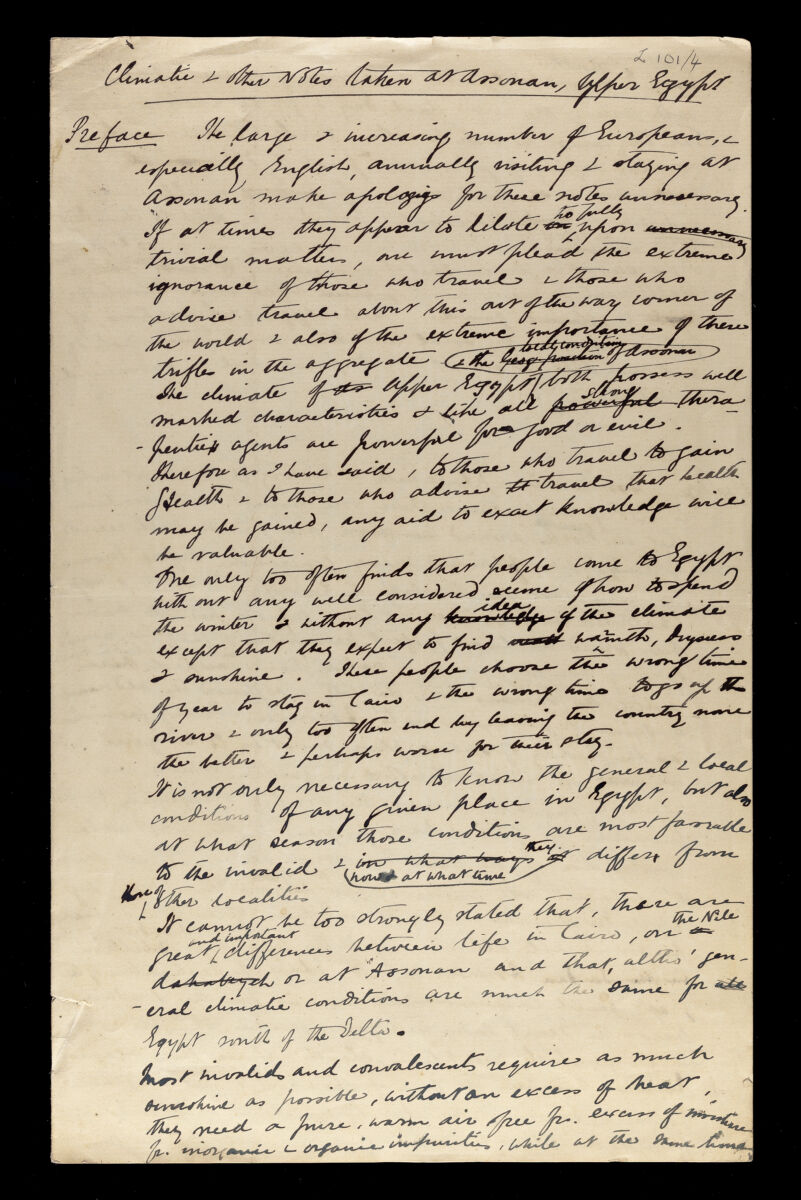 L 101/4
Climatic & other Notes taken at Assouan, Upper Egypt
Preface The large & increasing number of Europeans, &
especially English, annually visiting & staying at
Assouan make apologies for these notes unnecessary.
If at times they appear to dilate too fully upon unnecessary
trivial matters, one must plead the extreme
ignorance of those who travel & those who
advise travel about this out of the way corner of
the world & also of the extreme importance of these
trifles in the aggregate & the local conditions of Assouan
The climate of its Upper Egypt both possess well
marked characteristics & like all powerful strong thera
-peutic agents are powerful for good or evil.
Therefore as I have said, to those who travel to gain
health & to those who advise travel that health
may be gained, any aid to exact knowledge will
be valuable.
One only too often finds that people come to Egypt
without any well considered sceme of how to spend
the winter & without any knowledge idea of the climate
except that they expect to find warmth, dryness
& sunshine. These people choose the wrong time
of year to stay in Cairo & the wrong time to go up the
river & only too often end by leaving the country none
the better & perhaps worse for their stay.
It is not only necessary to know the general & local
conditions of any given place in Egypt, but also
at what season those conditions are most favorable
to the invalid & in what ways it how & at what time they differ from
those of other localities
It cannot be too strongly stated that, there are
great and important differences between life in Cairo, on a the Nile
dahabeyeh or at Assouan and that, altho' gen-
-eral climatic conditions are much the same for all
Egypt south of the Delta.
Most invalids and convalescents require as much
sunshine as possible, without an excess of heat,
they need a pure, warm air free fr. excess of moisture
fr. inorganic & organic impurities, while at the same time